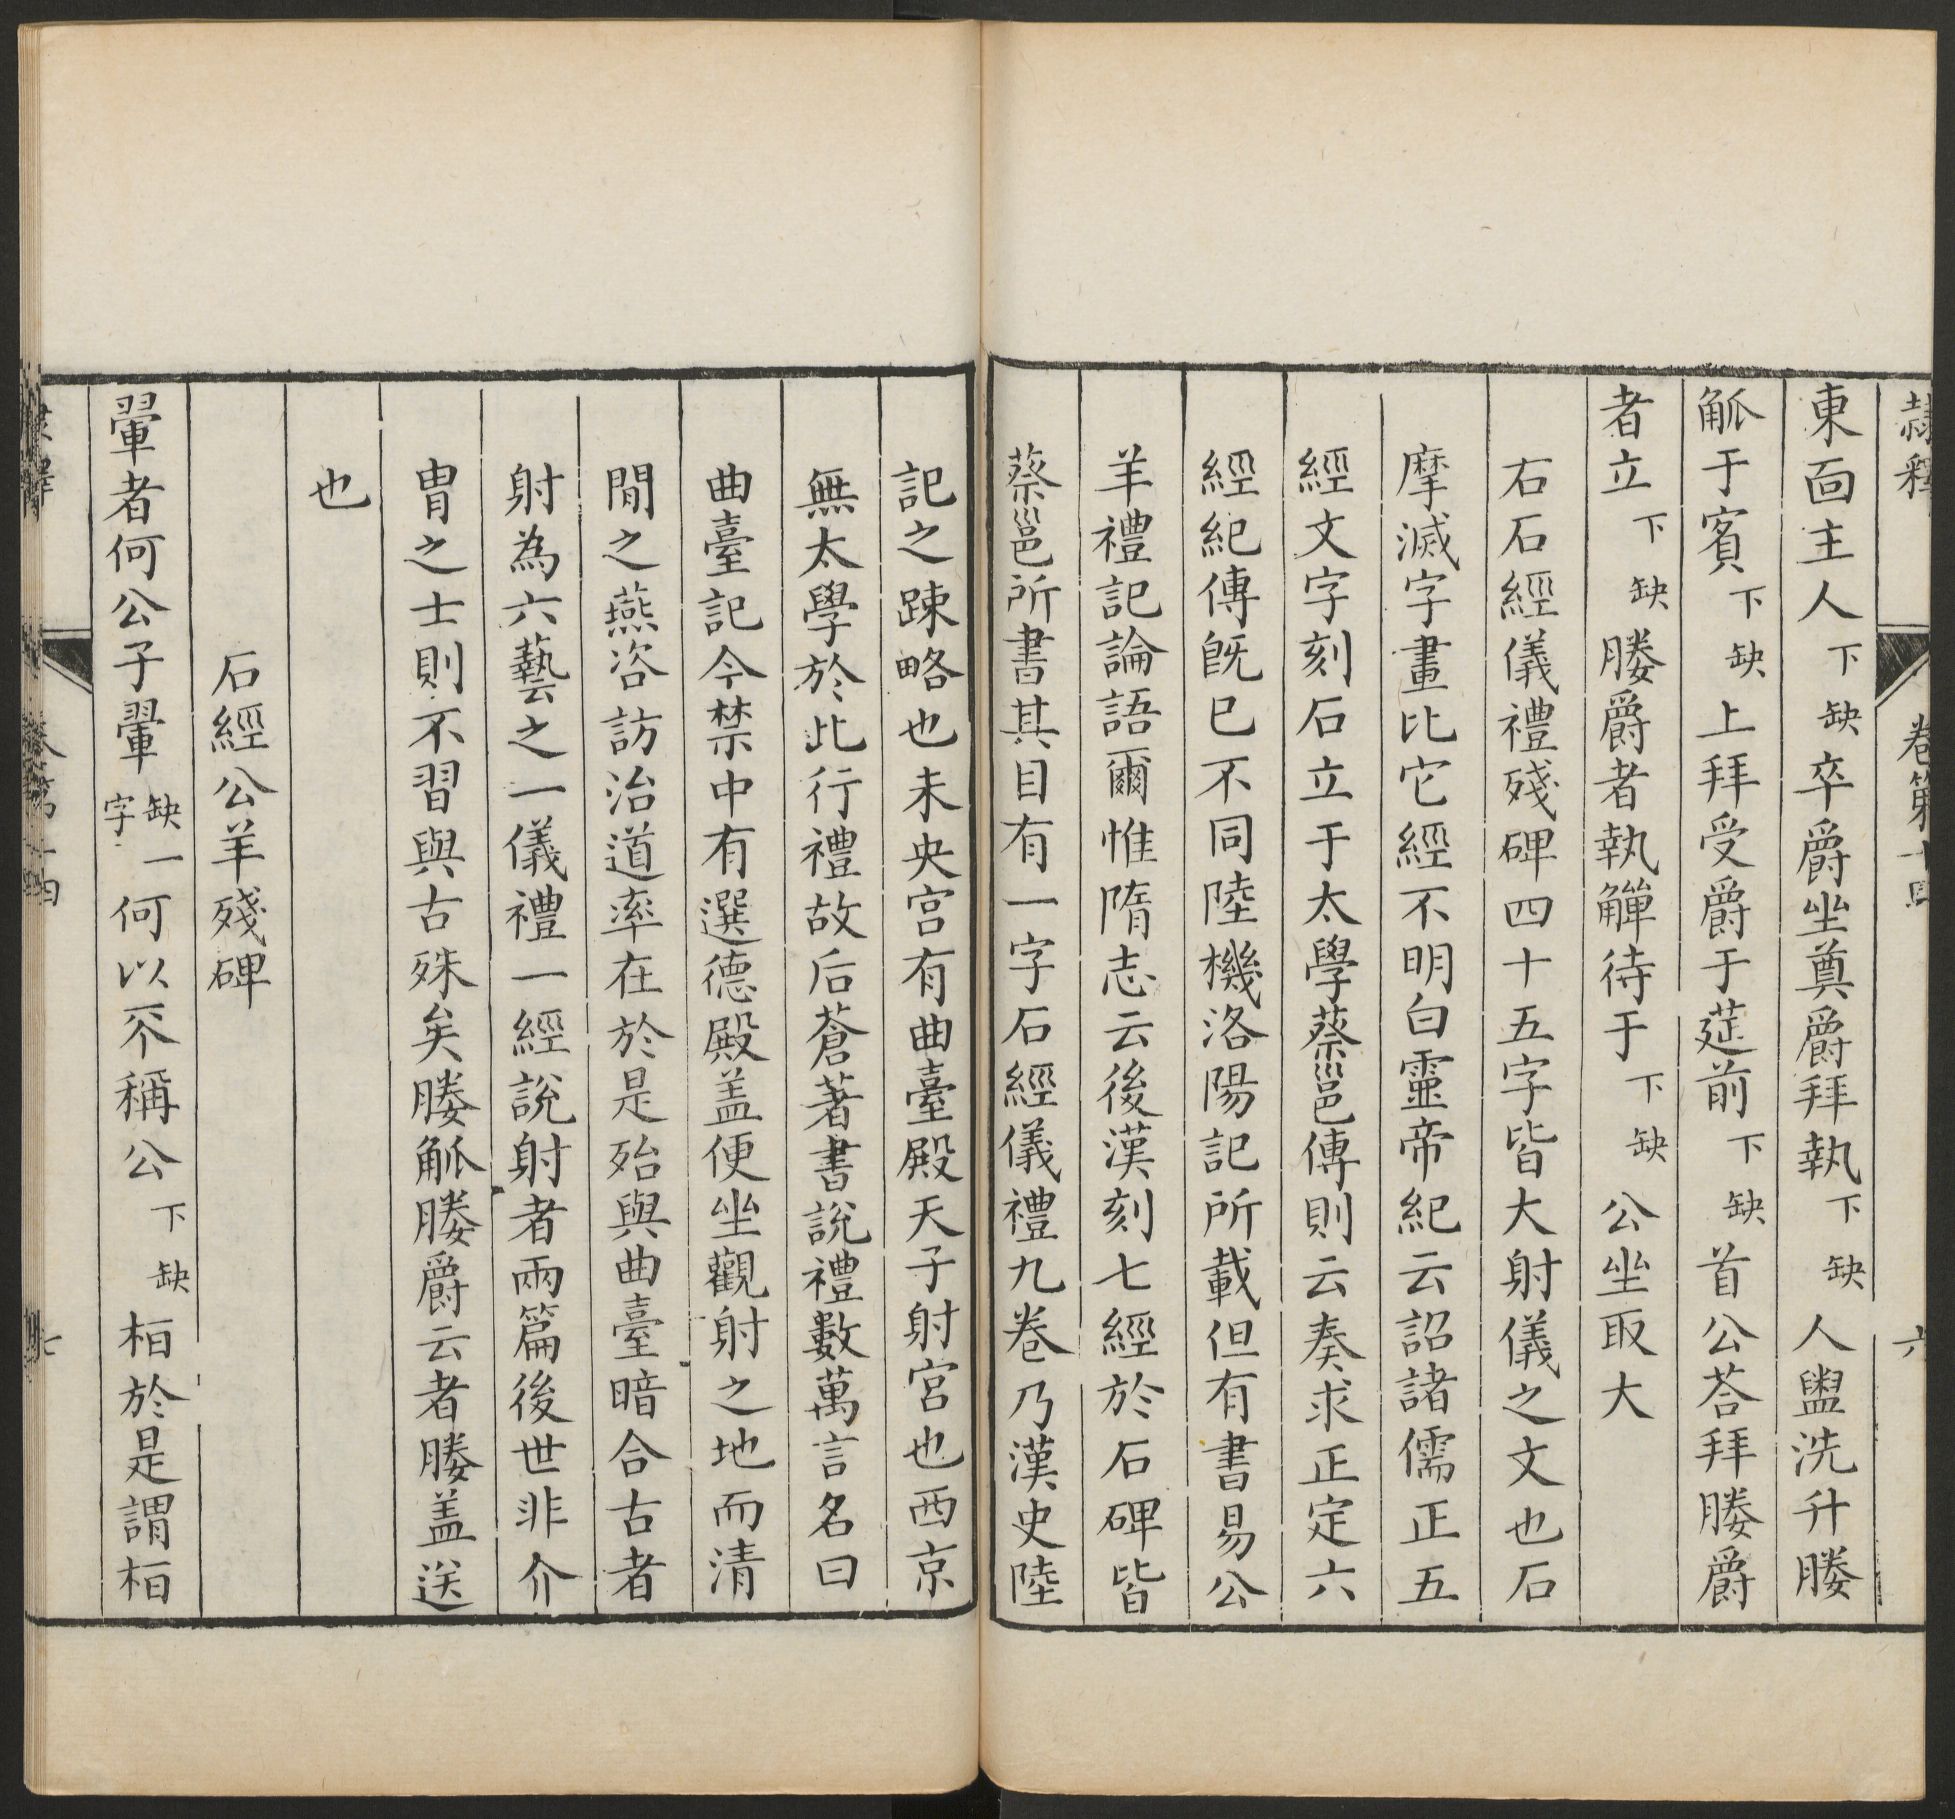 隸釋 卷第十四 六
東面主人下缺卒爵坐奠爵拜執下缺人盥洗升媵
觚于賓下缺上拜受爵于莚前下缺首公荅拜媵爵
者立下缺媵爵者執觶待于下缺公坐取大
右石經儀禮殘碑四十五字皆大射儀之文也石
摩滅字畫比它經不明白靈帝紀云詔諸儒正五
經文字刻石立于太學蔡邕傳則云奏求正定六
經紀傳旣已不同陸機洛陽記所載但有書易公
羊禮記論語爾惟隋志云後漢刻七經於石碑皆
蔡邕所書其目有一字石經儀禮九卷乃漢史陸
記之踈略也未央宮有曲臺殿天子射宮也西京
無太學於此行禮故后蒼著書說禮數萬言名曰
曲臺記今禁中有選德殿盖便坐觀射之地而清
閒之燕咨訪治道率在於是殆與曲臺暗合古者
射為六藝之一儀禮一經說射者兩篇後世非介
胄之士則不習與古殊矣媵觚媵爵云者媵盖送
也
石經公羊殘碑
翬者何公子翬缺一字何以不稱公下缺桓於是謂桓
卷第十四 七